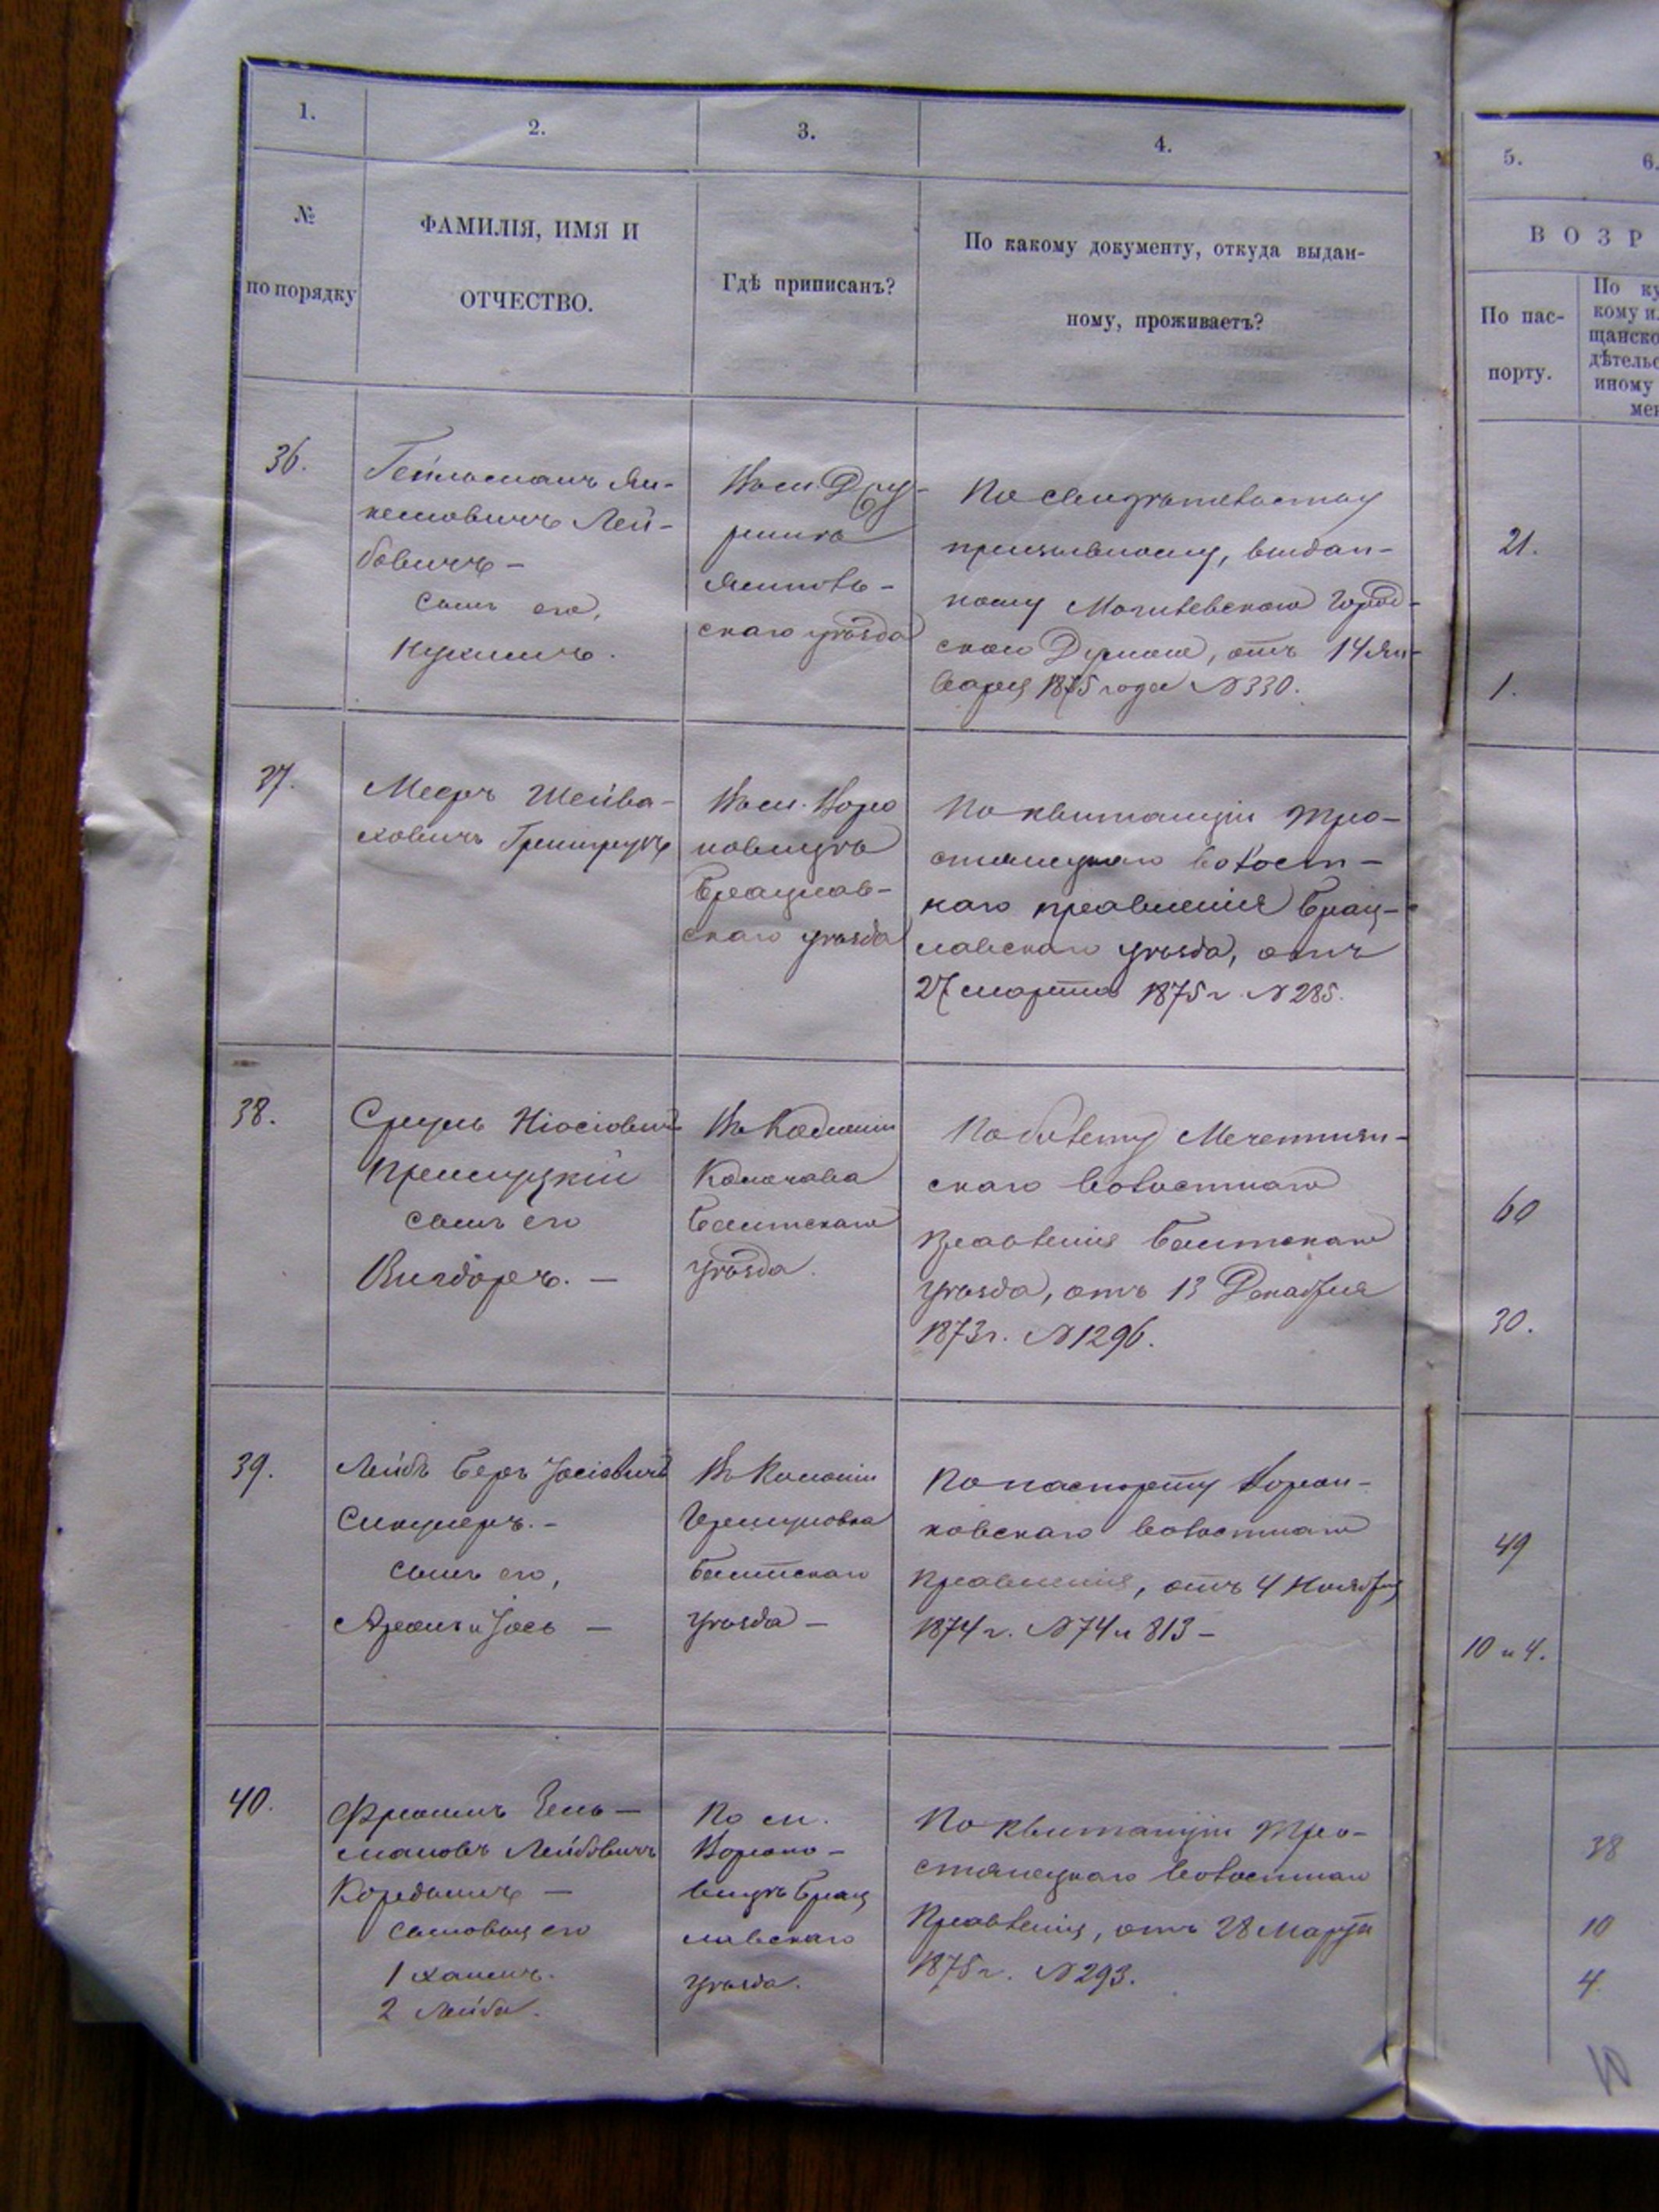 1.
2.
3.
4.
5.
6.
№
по порядку
ФАМИЛІЯ, ИМЯ И
ОТЧЕСТВО.
Гдѣ приписанъ?
По какому документу, откуда выдан-
ному, проживаетъ?
В О З Р
По пас-
порту.
По ку
кому и
щанско
дѣтельс
иному
мен
36.
Гейльманъ Ян-
келовичъ Лей-
бовичъ –
сынъ его,
Въ м.
Ямполь-
скаго уѣзда
По свидѣтельству
призывному, выдан-
ному Могилевскою Город-
скою Думою, отъ 14 Ян-
варя 1875 года № 330.
21.
1.
37.
Мееръ
Въ м. Воро
новицѣ
Брацлав-
скаго уѣзда
По квитанціи Тро-
стянецкаго волост-
наго правленія Брац-
лавскаго уѣзда, отъ
27 марта 1875 г. № 285.
38.
Сруль Ніосіовичъ
сынъ его
Вигдоръ. –
Въ Колоніи
Балтскаго
уѣзда.
По билету
скаго волостнаго
Правленія Балтскаго
уѣзда, отъ 13 Декабря
1873 г. № 1296.
60
30.
39.
Лейбъ Беръ Іосіовичъ
сынъ его,
Аронъ и Іось –
Въ Колоніи
Балтскаго
уѣзда –
По паспорту
волостнаго
Правленія, отъ 4 Ноября
1874 г. № 74 и 813 –
49
10 и 4.
40.
Фроимъ Зель-
мановъ Лейбовичъ
сыновья его
1 Хаимъ.
2 Лейба.
По м.
Вороно-
вицѣ Брац
лавскаго
уѣзда.
По Квитанціи Тро-
стянецкаго волостнаго
Правленія, отъ 28 Марта
1875 г. № 293.
38
10
4